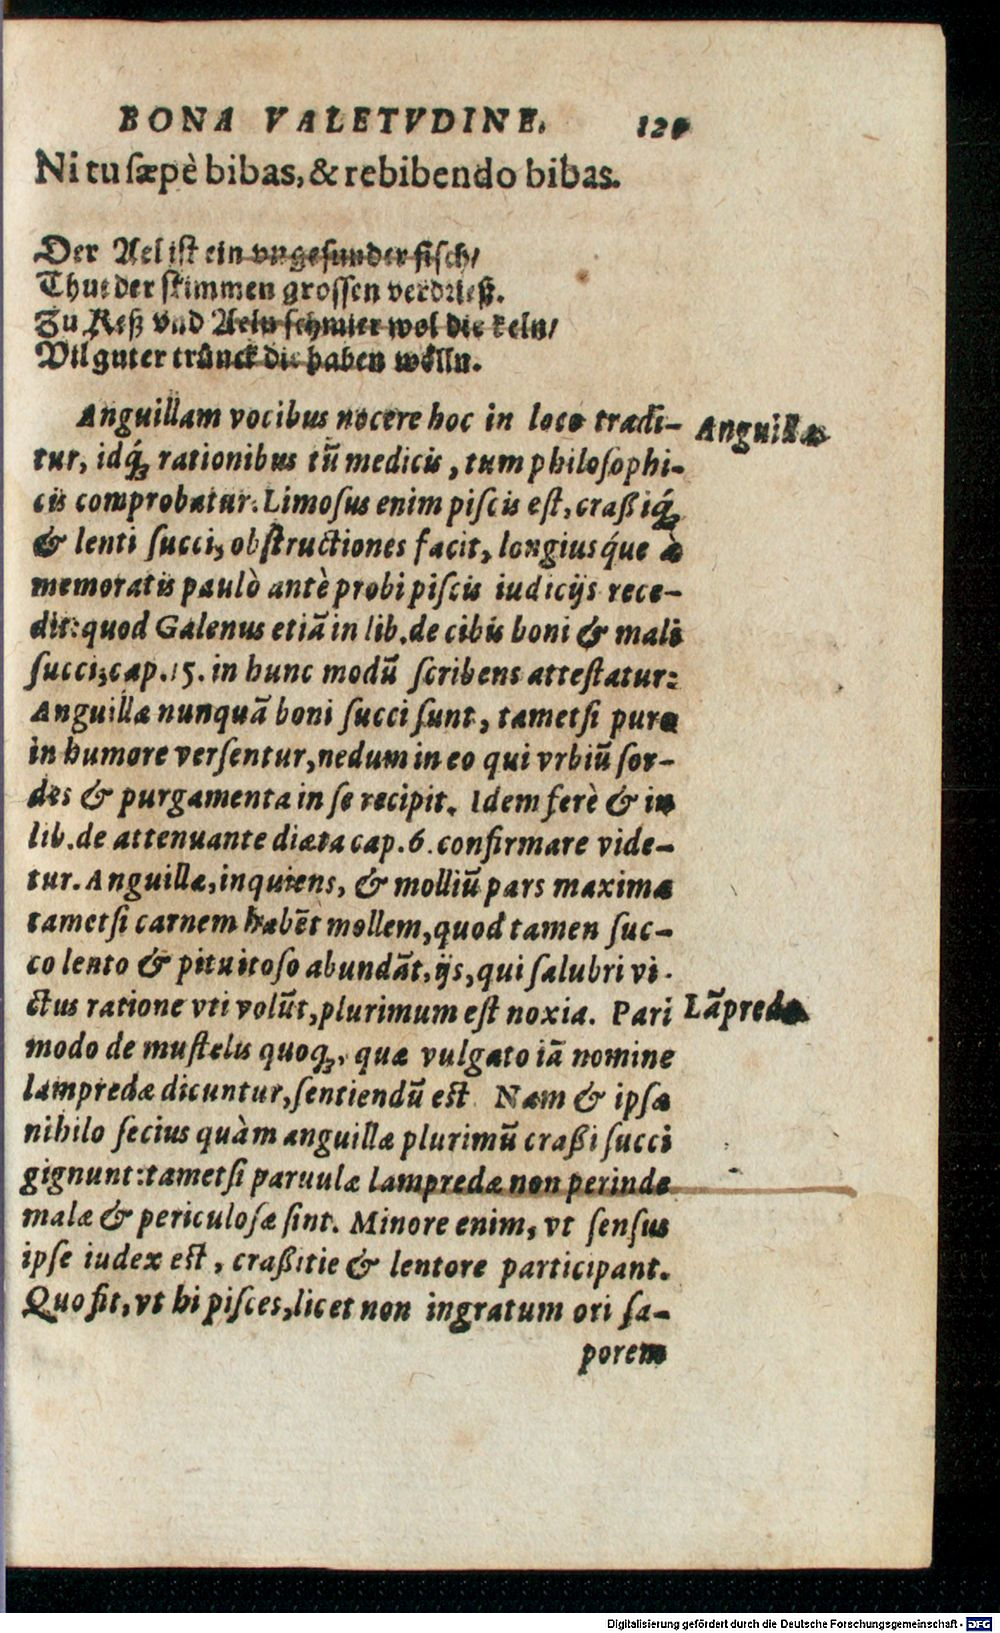 BONA VALETVDINE. 120
Ni tu sæpè bibas, & rebibendo bibas.
Der Ael ist ein vngesunder fisch/
Thut der stimmen grossen verdrieß.
Zu Keß vnd Aeln schmier wol die keln/
Vil guter trünck die haben wölln.
Anguillam vocibus nocere hoc in loco tradi-
Anguillæ
tur, idq́ꝫ rationibus tū medicis, tum philosophi-
cis comprobatur. Limosus enim piscis est, craßiq́ꝫ
& lenti succi, obstructiones facit, longiusq́ue à
memoratis paulò antè probi piscis iudicijs rece-
dit: quod Galenus etiā in lib. de cibis boni & mali
succi, cap. 15. in hunc modū scribens attestatur:
Anguillæ nunquā boni succi sunt, tametsi puro
in humore versentur, nedum in eo qui vrbiū sor-
des & purgamenta in se recipit. Idem ferè & in
lib. de attenuante diæta cap. 6. confirmare vide-
tur. Anguillæ, inquiens, & molliū pars maxima
tametsi carnem habēt mollem, quod tamen suc-
co lento & pituitoso abundāt, ijs, qui salubri vi-
ctus ratione vti volūt, plurimum est noxia. Pari
Lāpredæ
modo de mustelis quoqꝫ, quæ vulgato iā nomine
lampredæ dicuntur, sentiendū est Nam & ipsæ
nihilo secius quàm anguillæ plurimū craßi succi
gignunt: tametsi paruulæ lampredæ non perinde
malæ & periculosæ sint. Minore enim, vt sensus
ipse iudex est, craßitie & lentore participant.
Quo fit, vt hi pisces, licet non ingratum ori sa-
porem
Digitalisierung gefördert durch die Deutsche Forschungsgemeinschaft - DFG